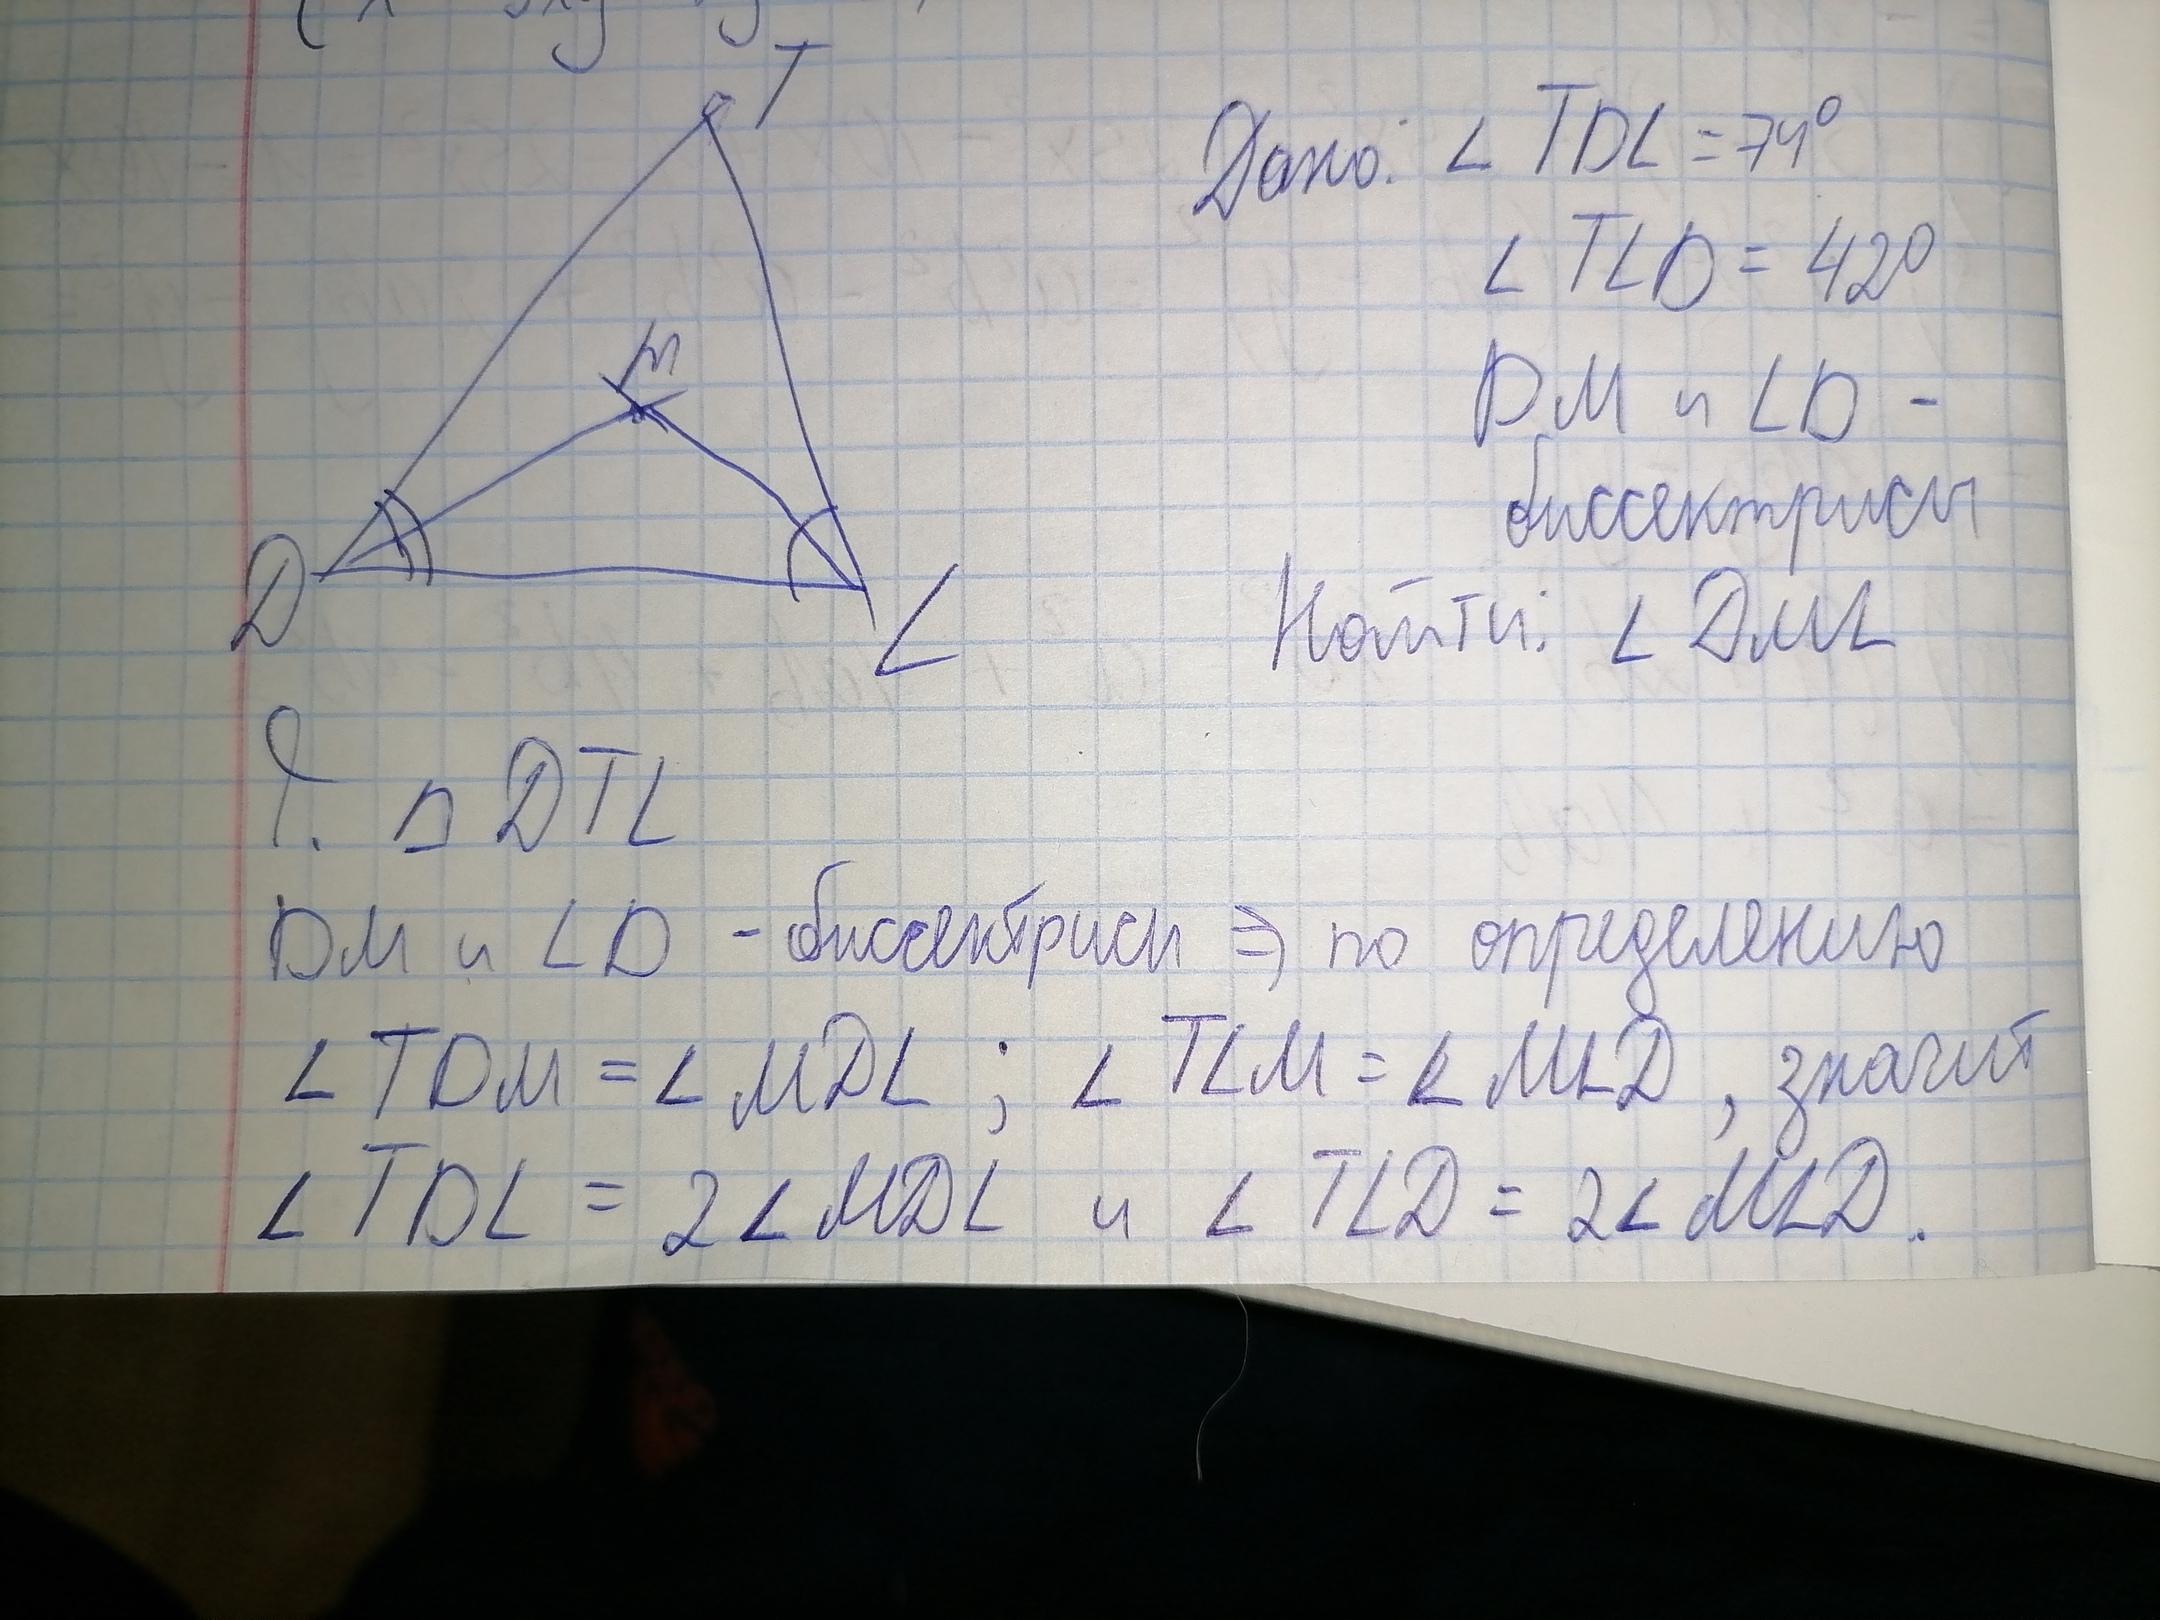 T
M
D
L
Дано: ∠ TDL = 74°
∠ TLD = 42°
DM и LD -
биссектрисы
Найти: ∠ DML
Р. △ DTL
DM и LD - биссектрисы ⇒ по определению
∠ TDM = ∠ MDL ; ∠ TLM = ∠ MLD , значит
∠ TDL = 2∠ MDL и ∠ TLD = 2∠ MLD .